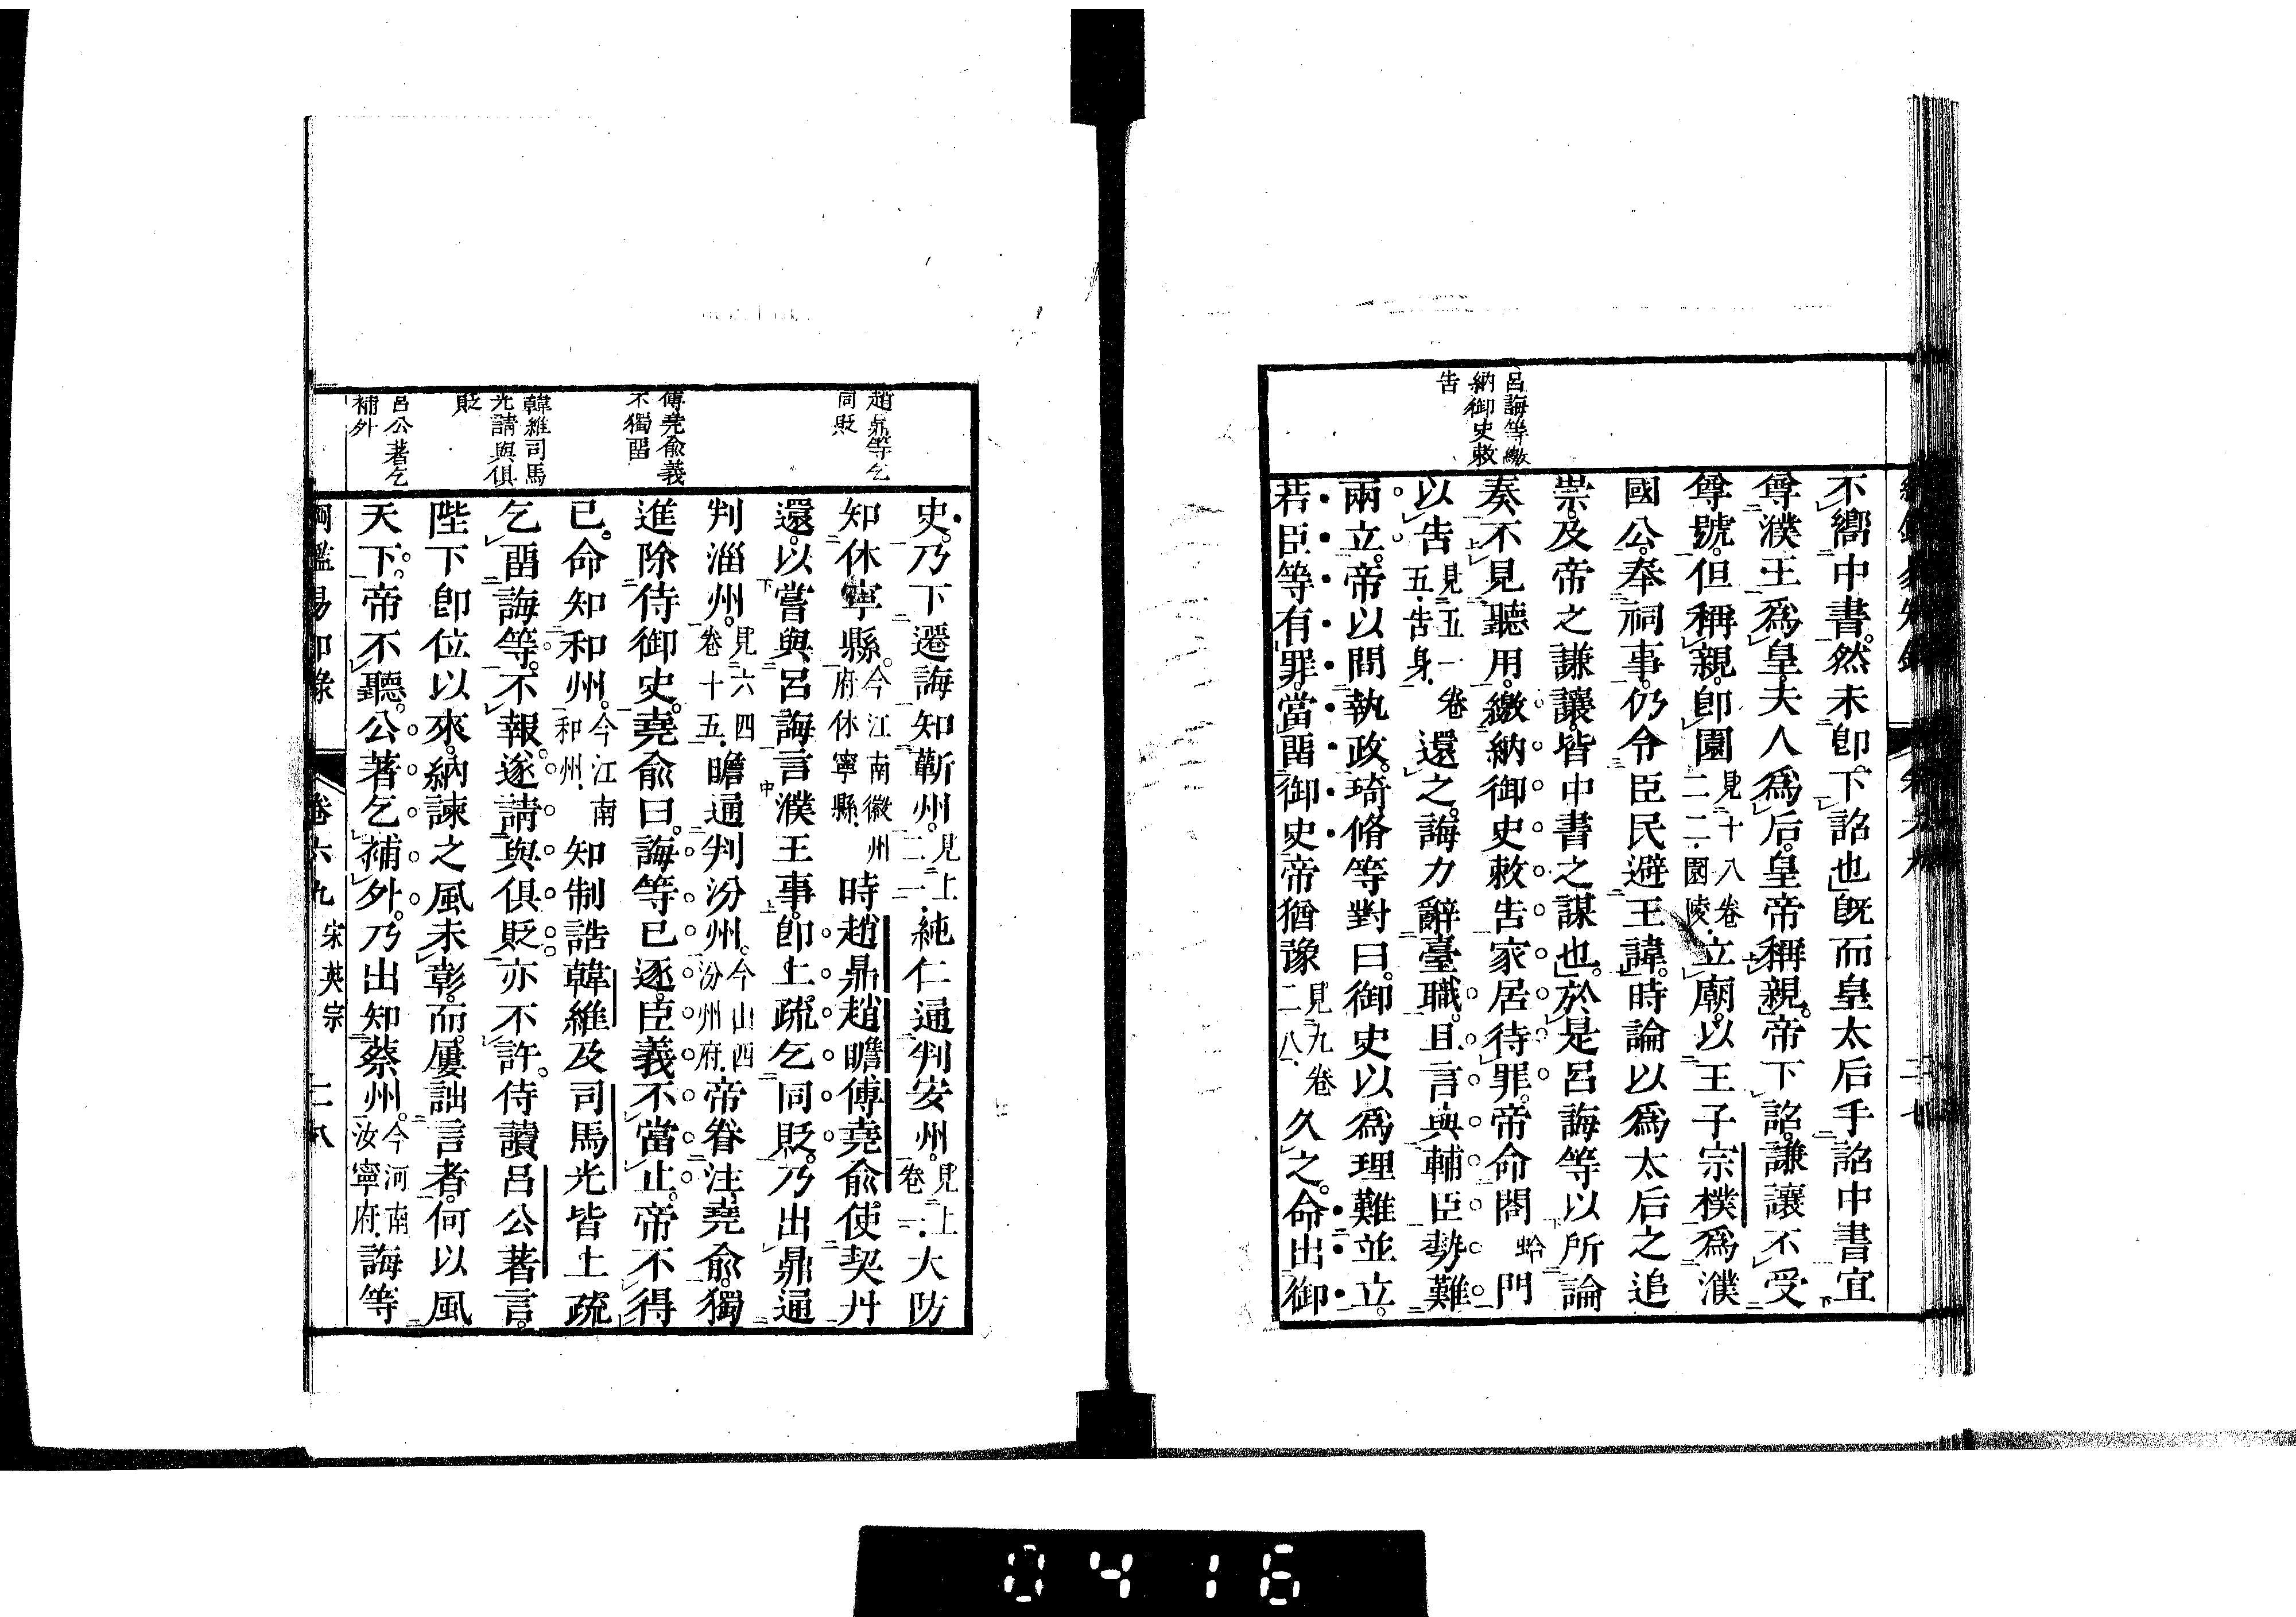 呂誨等繳
納御史敕
告
不嚮中書。然未卽下詔也。旣而皇太后手詔中書宜
尊濮王爲皇。夫人爲后。皇帝稱親。帝下詔。謙讓不受
尊號。但稱親。卽園見十八卷二二·園陵·立廟。以王子宗樸爲濮
國公。奉祠事。仍令臣民避王諱。時論以爲太后之追
崇。及帝之謙讓。皆中書之謀也。於是呂誨等以所論
奏不見聽用。繳納御史敕告家居待罪。帝命閤蛤門
以告見五一卷五·告身·還之。誨力辭臺職。且言與輔臣勢難
兩立。帝以問執政。琦脩等對曰。御史以爲理難並立。
若臣等有罪。當畱御史帝猶豫見九卷二八·久之。命出御
趙鼎等乞
同貶
傅堯兪義
不獨畱
韓維司馬
光請與俱
貶
呂公著乞
補外
史。乃下遷誨知蘄州。見上二一·純仁通判安州。見上卷一·大防
知休寧縣。今江南徽州府休寧縣·時趙鼎趙瞻傅堯兪使契丹
還。以嘗與呂誨言濮王事。卽上疏乞同貶。乃出鼎通
判淄州。見六四卷十五·瞻通判汾州。今山西汾州府·帝眷注堯兪。獨
進除侍御史。堯兪曰。誨等已逐。臣義不當止。帝不得
已。命知和州。今江南和州·知制誥韓維及司馬光皆上疏
乞畱誨等。不報。遂請與俱貶。亦不許。侍讀呂公著言。
陛下卽位以來。納諫之風未彰。而屢詘言者。何以風
天下。帝不聽。公著乞補外。乃出知蔡州。今河南汝寧府·誨等
綱鑑易知錄 卷六九 宋英宗 二八
0416